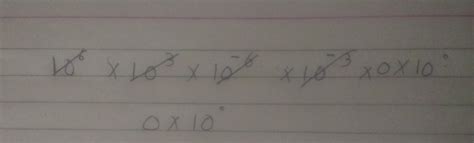 10⁶ × 10³ × 10⁻⁶ × 10⁻³ × 0 × 10°
0 × 10°